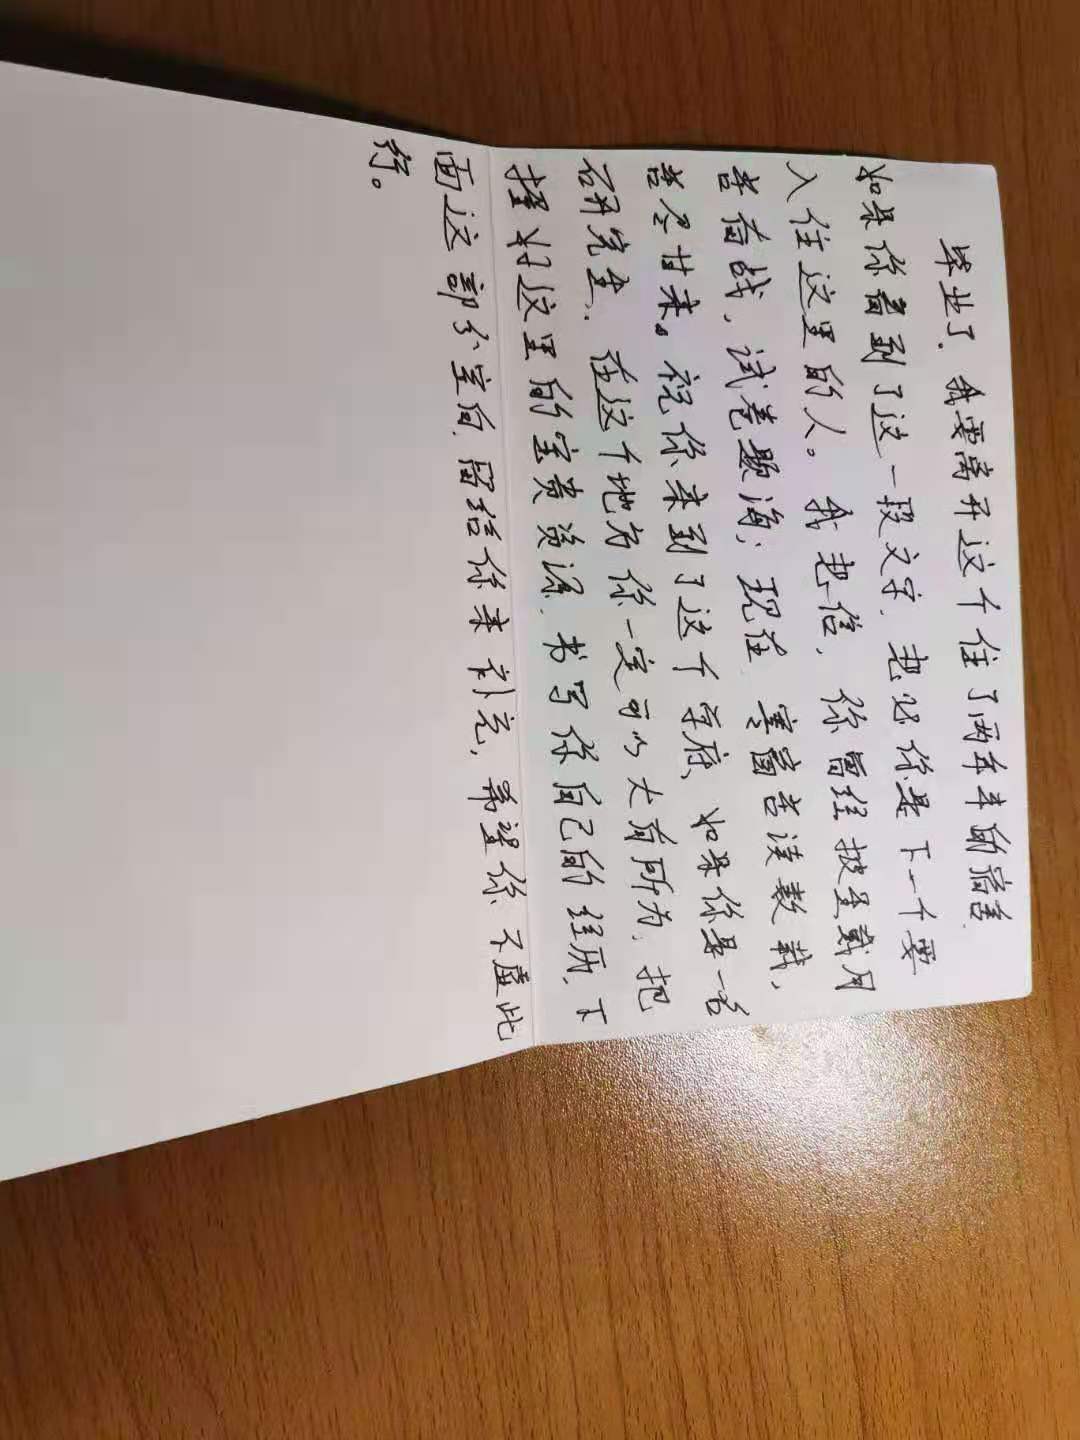 毕业了，我要离开这个住了两年半的宿舍，
如果你看到了这一段文字，想必你是下一个要
入住这里的人。我想信，你曾经披星戴月
苦奋战，试卷题海；现在，寒窗苦读数载，
苦尽甘来。祝你来到了这个学府、如果你是一名
研究生、在这个地方你一定可以大有所为，把
握好这里的宝贵资源，书写你自己的经历，下
面这部分空间，留给你来补充，希望你不虚此
行。